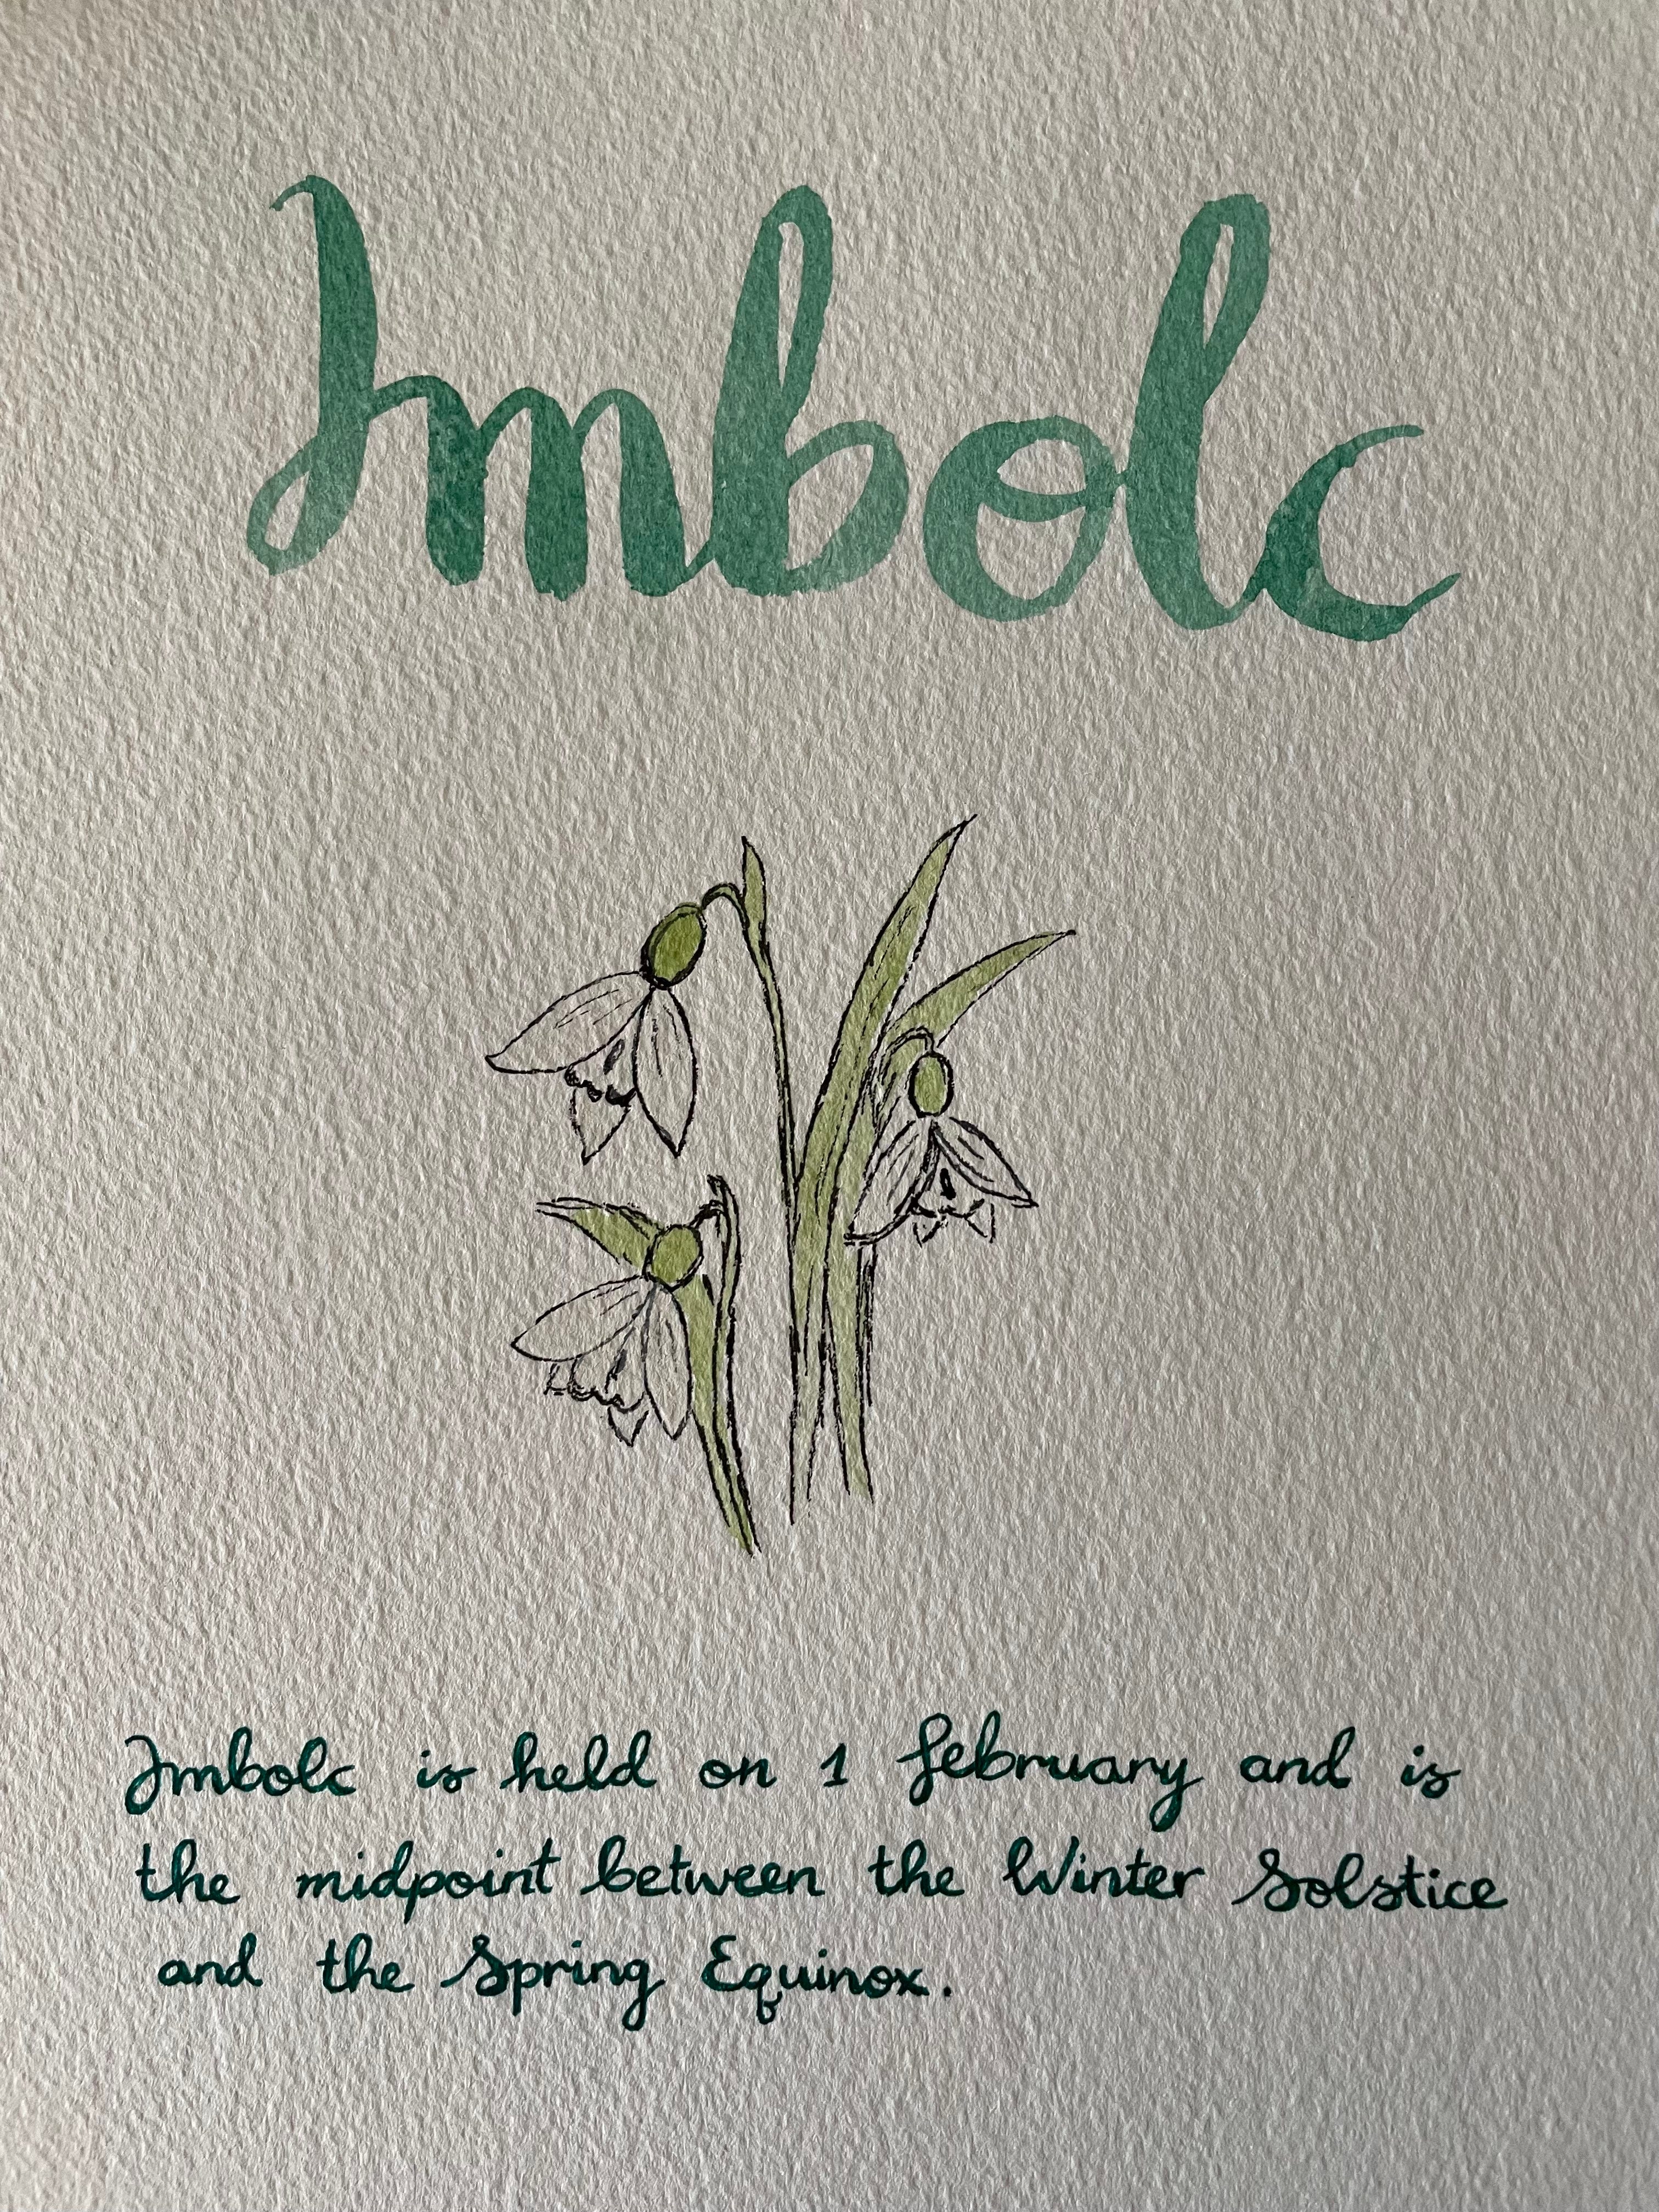 Imbolc
Imbolc is held on 1 february and is
the midpoint between the Winter Solstice
and the Spring Equinox.